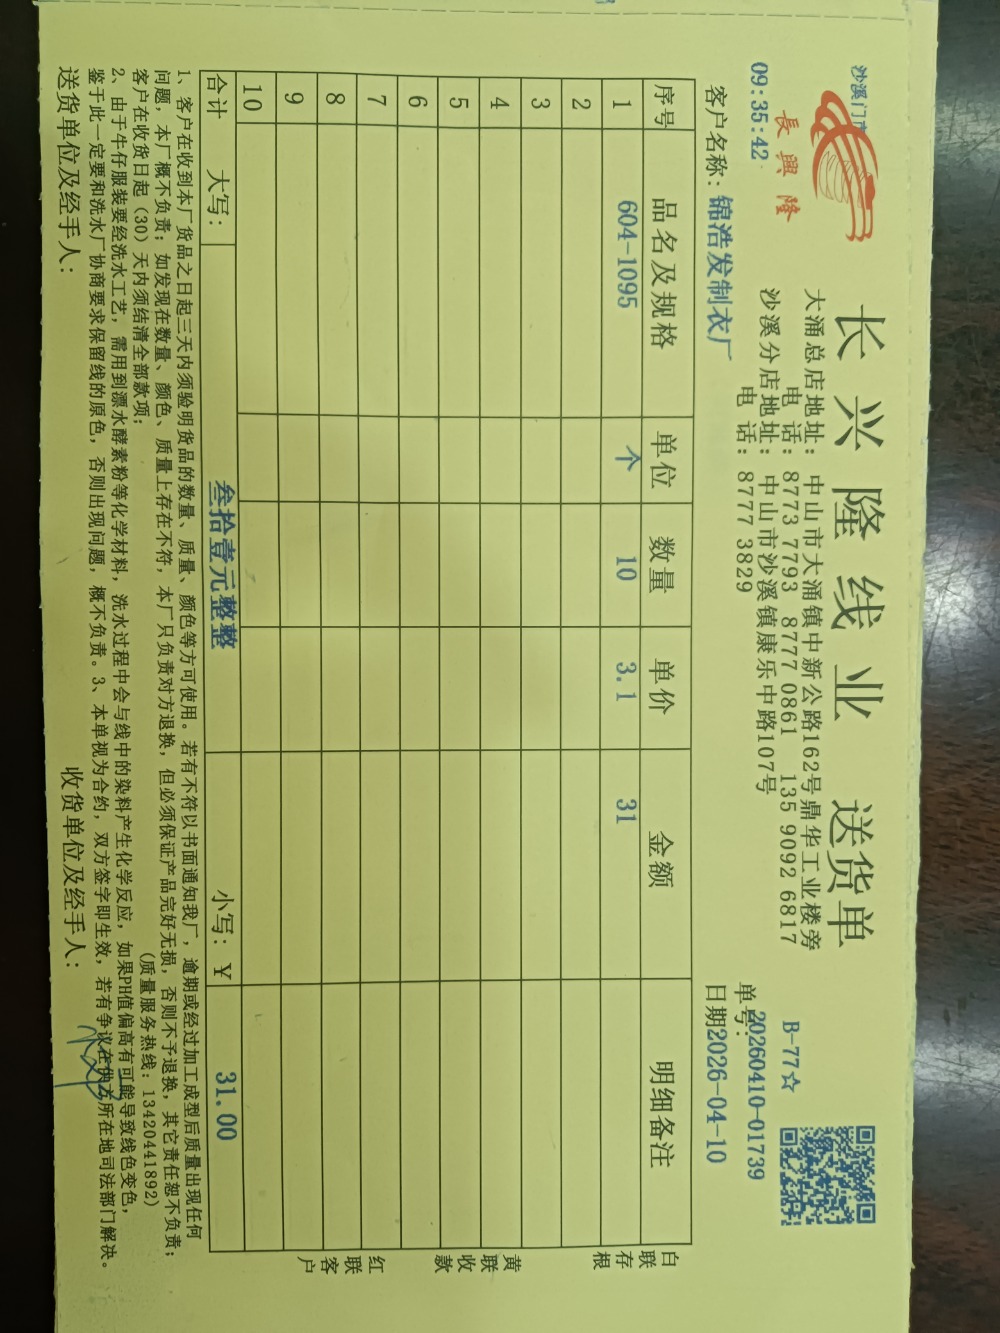 沙溪门市
長興隆
09:35:42
长兴隆线业 送货单
大涌总店地址：中山市大涌镇中新公路162号鼎华工业楼旁
电 话：8773 7793 8777 0861 135 9092 6817
沙溪分店地址：中山市沙溪镇康乐中路107号
电 话：8777 3829
B-77☆
单号：20260410-01739
客户名称：锦浩发制衣厂
日期2026-04-10
序号 品名及规格 单位 数量 单价 金额 明细备注
1 604-1095 个 10 3.1 31
2
3
4
5
6
7
8
9
10
合计 大写： 叁拾壹元整整 小写：￥ 31.00
白联存根
黄联收款
红联客户
1、客户在收到本厂货品之日起三天内须验明货品的数量、质量、颜色等方可使用。若有不符以书面通知我厂，逾期或经过加工成型后质量出现任何
问题，本厂概不负责；如发现在数量、颜色、质量上存在不符，本厂只负责对方退换，但必须保证产品完好无损，否则不予退换，其它责任恕不负责；
客户在收货日起（30）天内须结清全部款项； (质量服务热线：13420441892)
2、由于牛仔服装要经洗水工艺，需用到漂水酵素粉等化学材料，洗水过程中会与线中的染料产生化学反应，如果PH值偏高有可能导致线色变色，
鉴于此一定要和洗水厂协商要求保留线的原色，否则出现问题，概不负责。3、本单视为合约，双方签字即生效，若有争议在供方所在地司法部门解决。
送货单位及经手人： 收货单位及经手人：